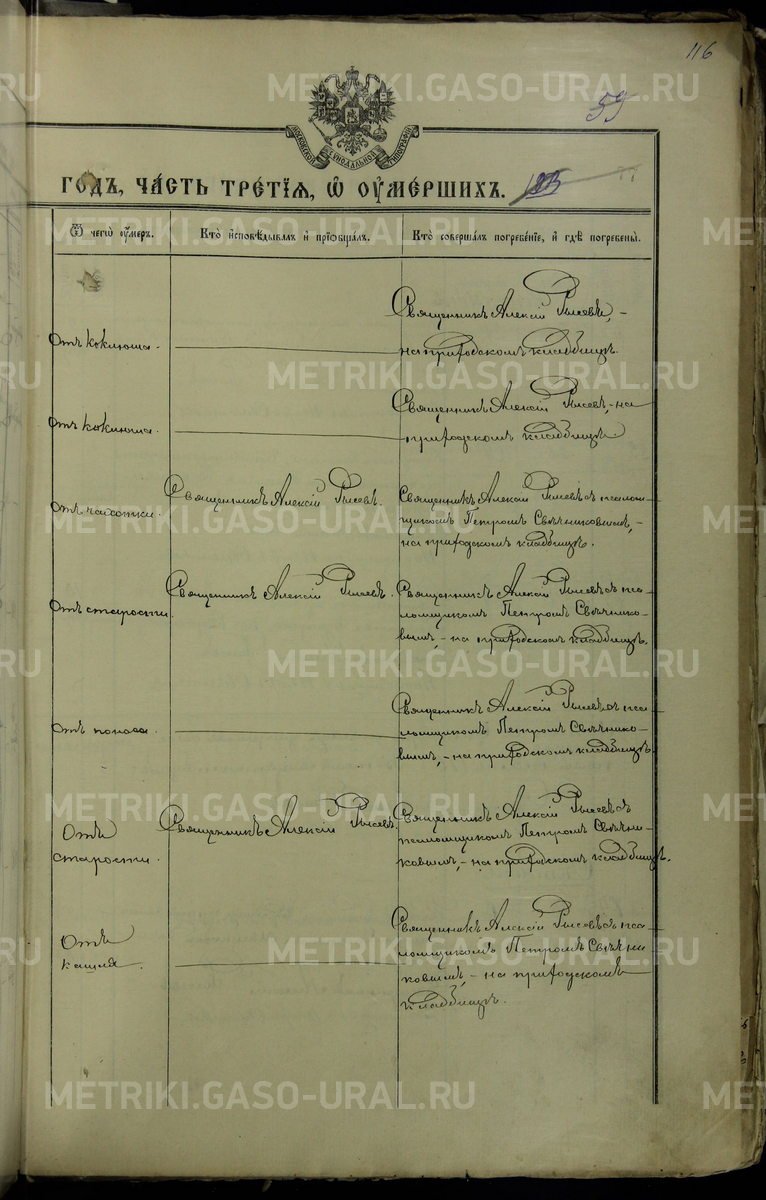 116
59
МОСКОВСКОЙ СѴНОДАЛЬНОЙ ТИПОГРАФІИ
ГОДЪ, ЧАСТЬ ТРЕТІЯ, Ѿ ОУМЕРШИХЪ.
Ѿ чегѡ оумеръ.
Кто исповѣдывалъ и пріобщалъ.
Кто совершалъ погребеніе, и гдѣ погребены.
Отъ коклюша.
Священникъ Алексій Рысевъ, –
на приходскомъ кладбищѣ.
Отъ коклюша.
Священникъ Алексій Рысевъ, – на
приходскомъ кладбищѣ
Отъ чахотки.
Священникъ Алексій Рысевъ.
Священникъ Алексій Рысевъ съ псалом-
щикомъ Петромъ Свѣчниковымъ, –
на приходскомъ кладбищѣ.
Отъ старости.
Священникъ Алексій Рысевъ.
Священникъ Алексій Рысевъ съ пса-
ломщикомъ Петромъ Свѣчнико-
вымъ, – на приходскомъ кладбищѣ.
Отъ поноса.
Священникъ Алексій Рысевъ съ пса-
ломщикомъ Петромъ Свѣчнико-
вымъ, – на приходскомъ кладбищѣ.
Отъ
старости.
Священникъ Алексій Рысевъ.
Священникъ Алексій Рысевъ съ
псаломщикомъ Петромъ Свѣчни-
ковымъ, – на приходскомъ кладбищѣ.
Отъ
кашля.
Священникъ Алексій Рысевъ съ пса-
ломщикомъ Петромъ Свѣчни
ковымъ, – на приходскомъ
кладбищѣ.
METRIKI.GASO-URAL.RU